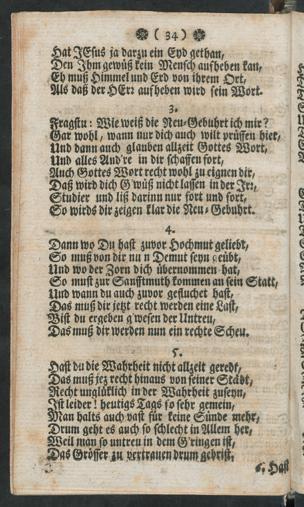 ( 34 )
Hat JEsus ja darzu ein Eyd gethan,
Den Ihm gewüß kein Mensch aufheben kan,
Eh muß Himmel und Erd von ihrem Ort,
Als daß der HErr aufheben wird sein Wort.
3.
Fragstu: Wie weiß die Neu-Gebuhrt ich mir?
Gar wohl, wann nur dich auch wilt prüffen hier,
Und dann auch glauben allzeit Gottes Wort,
Und alles And're in dir schaffen fort,
Auch Gottes Wort recht wohl zu eignen dir,
Daß wird dich G'wüß nicht lassen in der Irr,
Studier und liß darinn nur fort und fort,
So wirds dir zeigen klar die Neu-Gebuhrt.
4.
Dann wo Du hast zuvor Hochmut geliebt,
So muß von dir nun Demut seyn geübt,
Und wo der Zorn dich übernommen hat,
So must zur Sanfftmuth kommen an sein Statt,
Und wann du auch zuvor gefluchet hast,
Das muß dir jetzt recht werden eine Last,
Bist du ergeben g'wesen der Untreu,
Das muß dir werden nun ein rechte Scheu.
5.
Hast du die Wahrheit nicht allzeit geredt,
Das muß jez recht hinaus von seiner Städt,
Recht unglüklich in der Wahrheit zuseyn,
Ist leider! heutigs Tags so sehr gemein,
Man halts auch vast für keine Sünde mehr,
Drum geht es auch so schlecht in Allem her,
Weil man so untreu in dem G'ringen ist,
Das Grösser zu vertrauen drum gebrist.
6. Hast